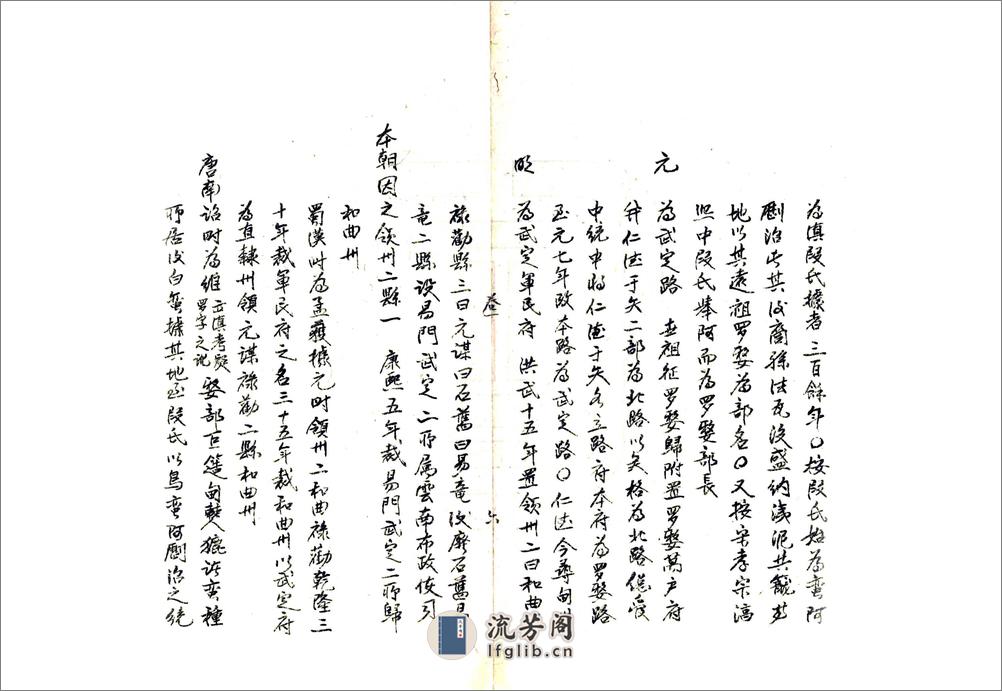 為滇段氏據者三百餘年〇按段氏始為蛮阿
㓮治此其後裔孫法瓦浸盛納洟泥共龍等
地以其遠祖罗婺為部名〇又按宋孝宗淳
熙中段氏举阿而為罗婺部長
元 為武定路 世祖征罗婺歸附置罗婺萬户府
并仁德于矢二部為北路以矣格為北路總管
中統中將仁德于矢各立路府本府為罗婺路
至元七年改本路為武定路〇仁德今尋甸州
明 為武定軍民府 洪武十五年置領州二曰和曲
禄勸縣三曰元謀曰石舊曰易竜後廢石舊易
竜二縣設易門武定二所属雲南布政使司
本朝因之領州二縣一 康熙五年裁易門武定二所歸
和曲州
蜀漢时為孟獲據元时領州二和曲禄勸乾隆三
十年裁軍民府之名三十五年裁和曲州以武定府
為直隸州領元謀禄勸二縣和曲州
唐南诏时為維 云滇考疑罗字之讹 婺部巨簉甸僰人獹讹蛮種
所居後白蛮據其地至段氏以烏蛮阿㓮治之統
卷一 六
流芳阁
lfglib.cn